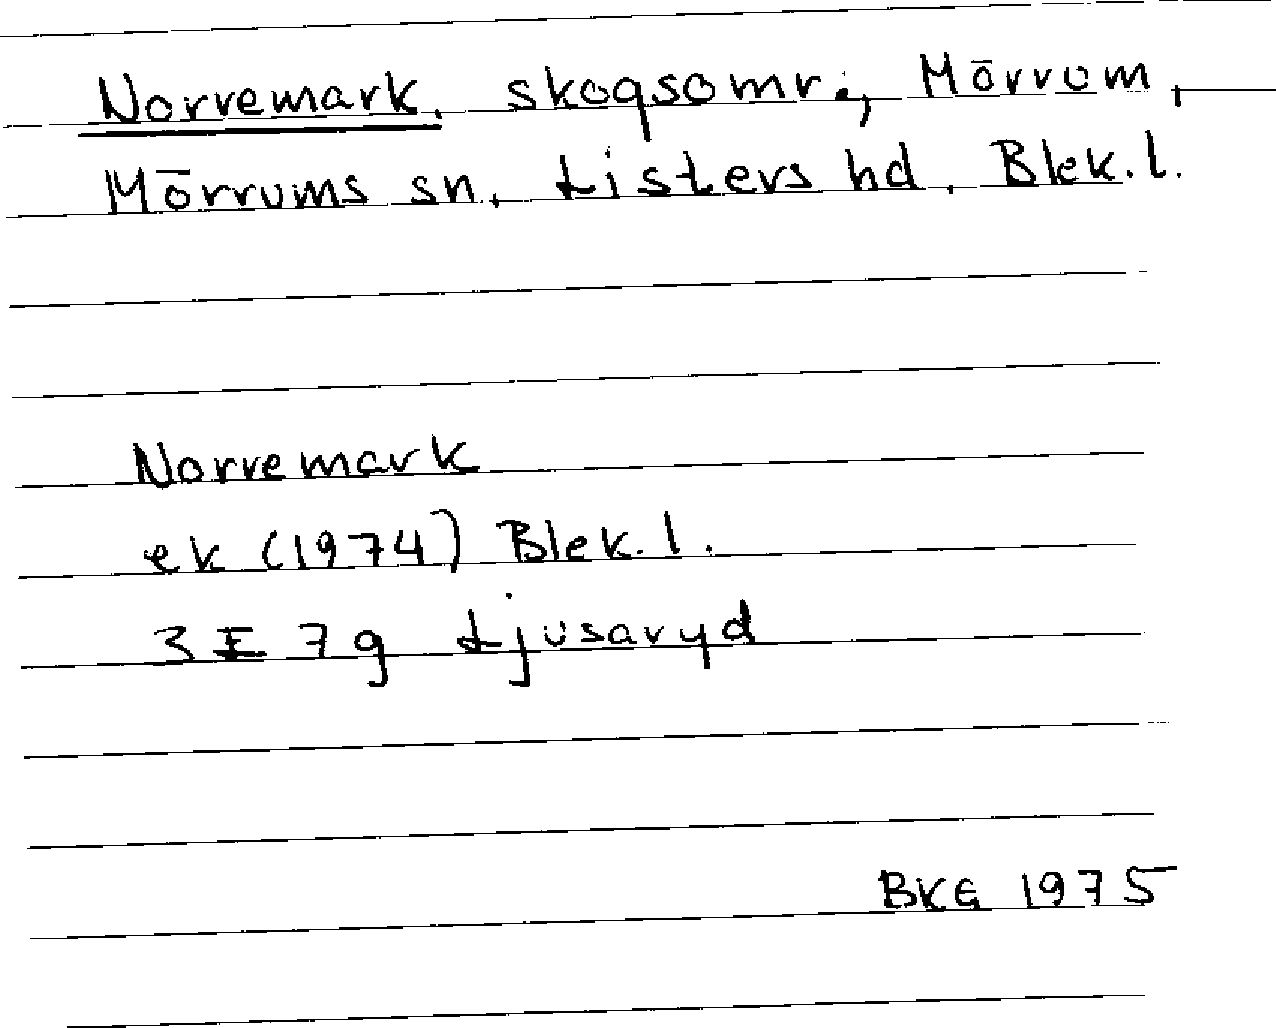 Norremark, skogsomr., Mörrum,
Mörrums sn, Listers hd, Blek. l.
Norremark
ek (1974) Blek. l.
3 E 7 g Ljusaryd
BKG 1975